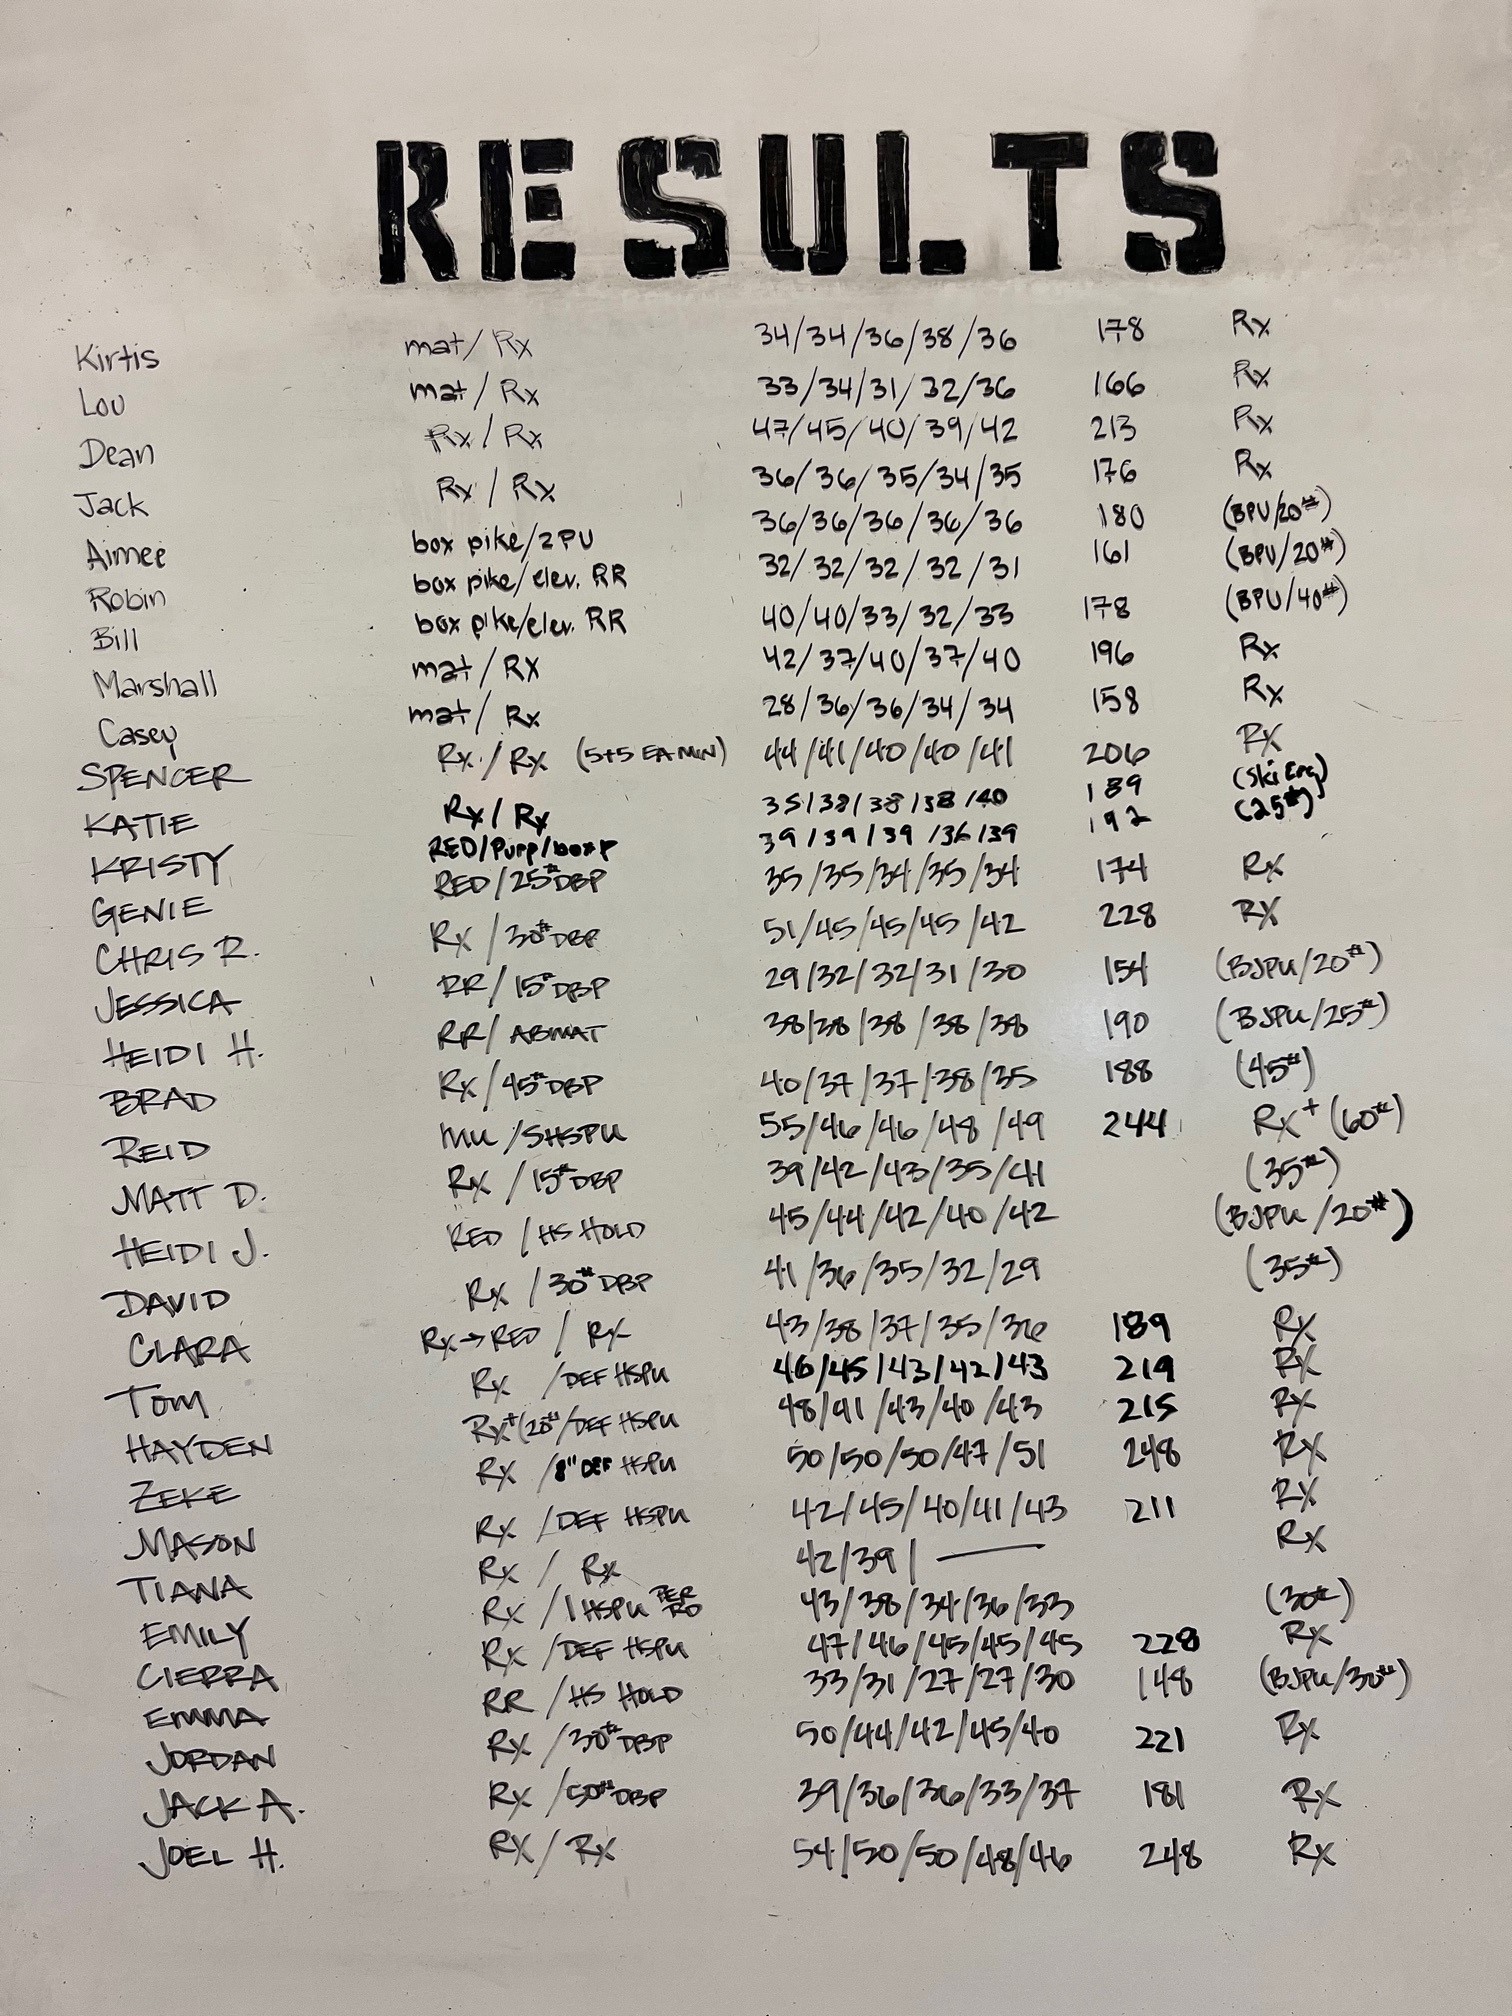 RESULTS
Kirtis mat/Rx 34/34/36/38/36 178 Rx
Lou mat/Rx 33/34/31/32/36 166 Rx
Dean Rx/Rx 47/45/40/39/42 213 Rx
Jack Rx/Rx 36/36/35/34/35 176 Rx
Aimee box pike/2PU 36/36/36/36/36 180 (BPU/20#)
Robin box pike/elev. RR 32/32/32/32/31 161 (BPU/20#)
Bill box pike/elev. RR 40/40/33/32/33 178 (BPU/40#)
Marshall mat/RX 42/37/40/37/40 196 Rx
Casey mat/Rx 28/36/36/34/34 158 Rx
SPENCER Rx/Rx (5+5 EA MIN) 44/41/40/40/41 206 RX
KATIE Rx/Rx 35/38/38/38/40 189 (Ski Erg)
KRISTY RED/Purp/boxp 39/39/39/36/39 192 (25#)
GENIE RED/25# DBP 35/35/34/35/34 174 Rx
CHRIS R. Rx/30# DBP 51/45/45/45/42 228 RX
JESSICA RR/15# DBP 29/32/32/31/30 154 (BJPU/20#)
HEIDI H. RR/ABMAT 38/38/38/38/38 190 (BJPU/25#)
BRAD Rx/45# DBP 40/37/37/38/35 188 (45#)
REID MU/SHSPU 55/46/46/48/49 244 Rx+ (60#)
MATT D. Rx/15# DBP 39/42/43/35/41 (35#)
HEIDI J. RED/HS HOLD 45/44/42/40/42 (BJPU/20#)
DAVID Rx/30# DBP 41/36/35/32/29 (35#)
CLARA Rx→RED/Rx 43/38/37/35/36 189 Rx
TOM Rx/DEF HSPU 46/45/43/42/43 219 RX
HAYDEN Rx+(20#/DEF HSPU 48/41/43/40/43 215 Rx
ZEKE Rx/8" DEF HSPU 50/50/50/47/51 248 RX
MASON Rx/DEF HSPU 42/45/40/41/43 211 RX
TIANA Rx/Rx 42/39/— Rx
EMILY Rx/1 HSPU PER RD 43/38/34/36/33 (30#)
CIERRA Rx/DEF HSPU 47/46/45/45/45 228 Rx
EMMA RR/HS HOLD 33/31/27/27/30 148 (BJPU/30#)
JORDAN Rx/30# DBP 50/44/42/45/40 221 Rx
JACK A. Rx/50# DBP 39/36/36/33/37 181 Rx
JOEL H. RX/Rx 54/50/50/48/46 248 Rx